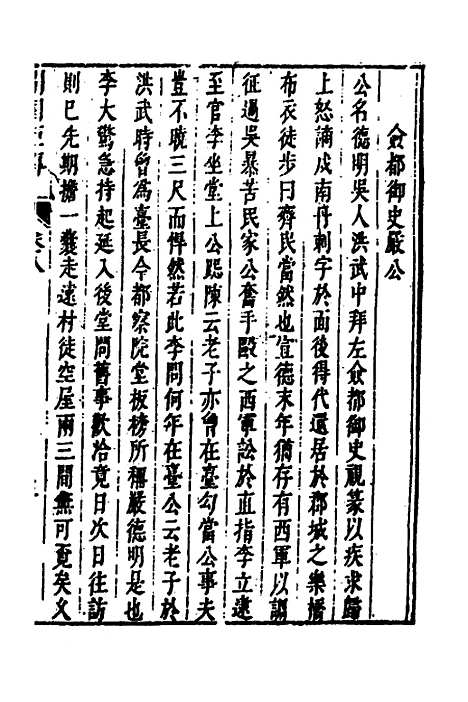 僉都御史嚴公
公名德明吳人洪武中拜左僉都御史視篆以疾求歸
上怒謫戍南丹刺字於面後得代還居於郡城之樂橋
布衣徒步曰齊民當然也宣德末年猶存有西軍以謫
征過吳暴苦民家公奮手毆之西軍訟於直指李立逮
至官李坐堂上公跽陳云老子亦曾在臺勾當公事夫
豈不曉三尺而悍然若此李問何年在臺公云老子於
洪武時曾為臺長今都察院堂板榜所稱嚴德明是也
李大驚急持起延入後堂問舊事歡洽竟日次日往訪
則已先期擔一囊走遠村徒空屋兩三間無可覓矣又
卷八